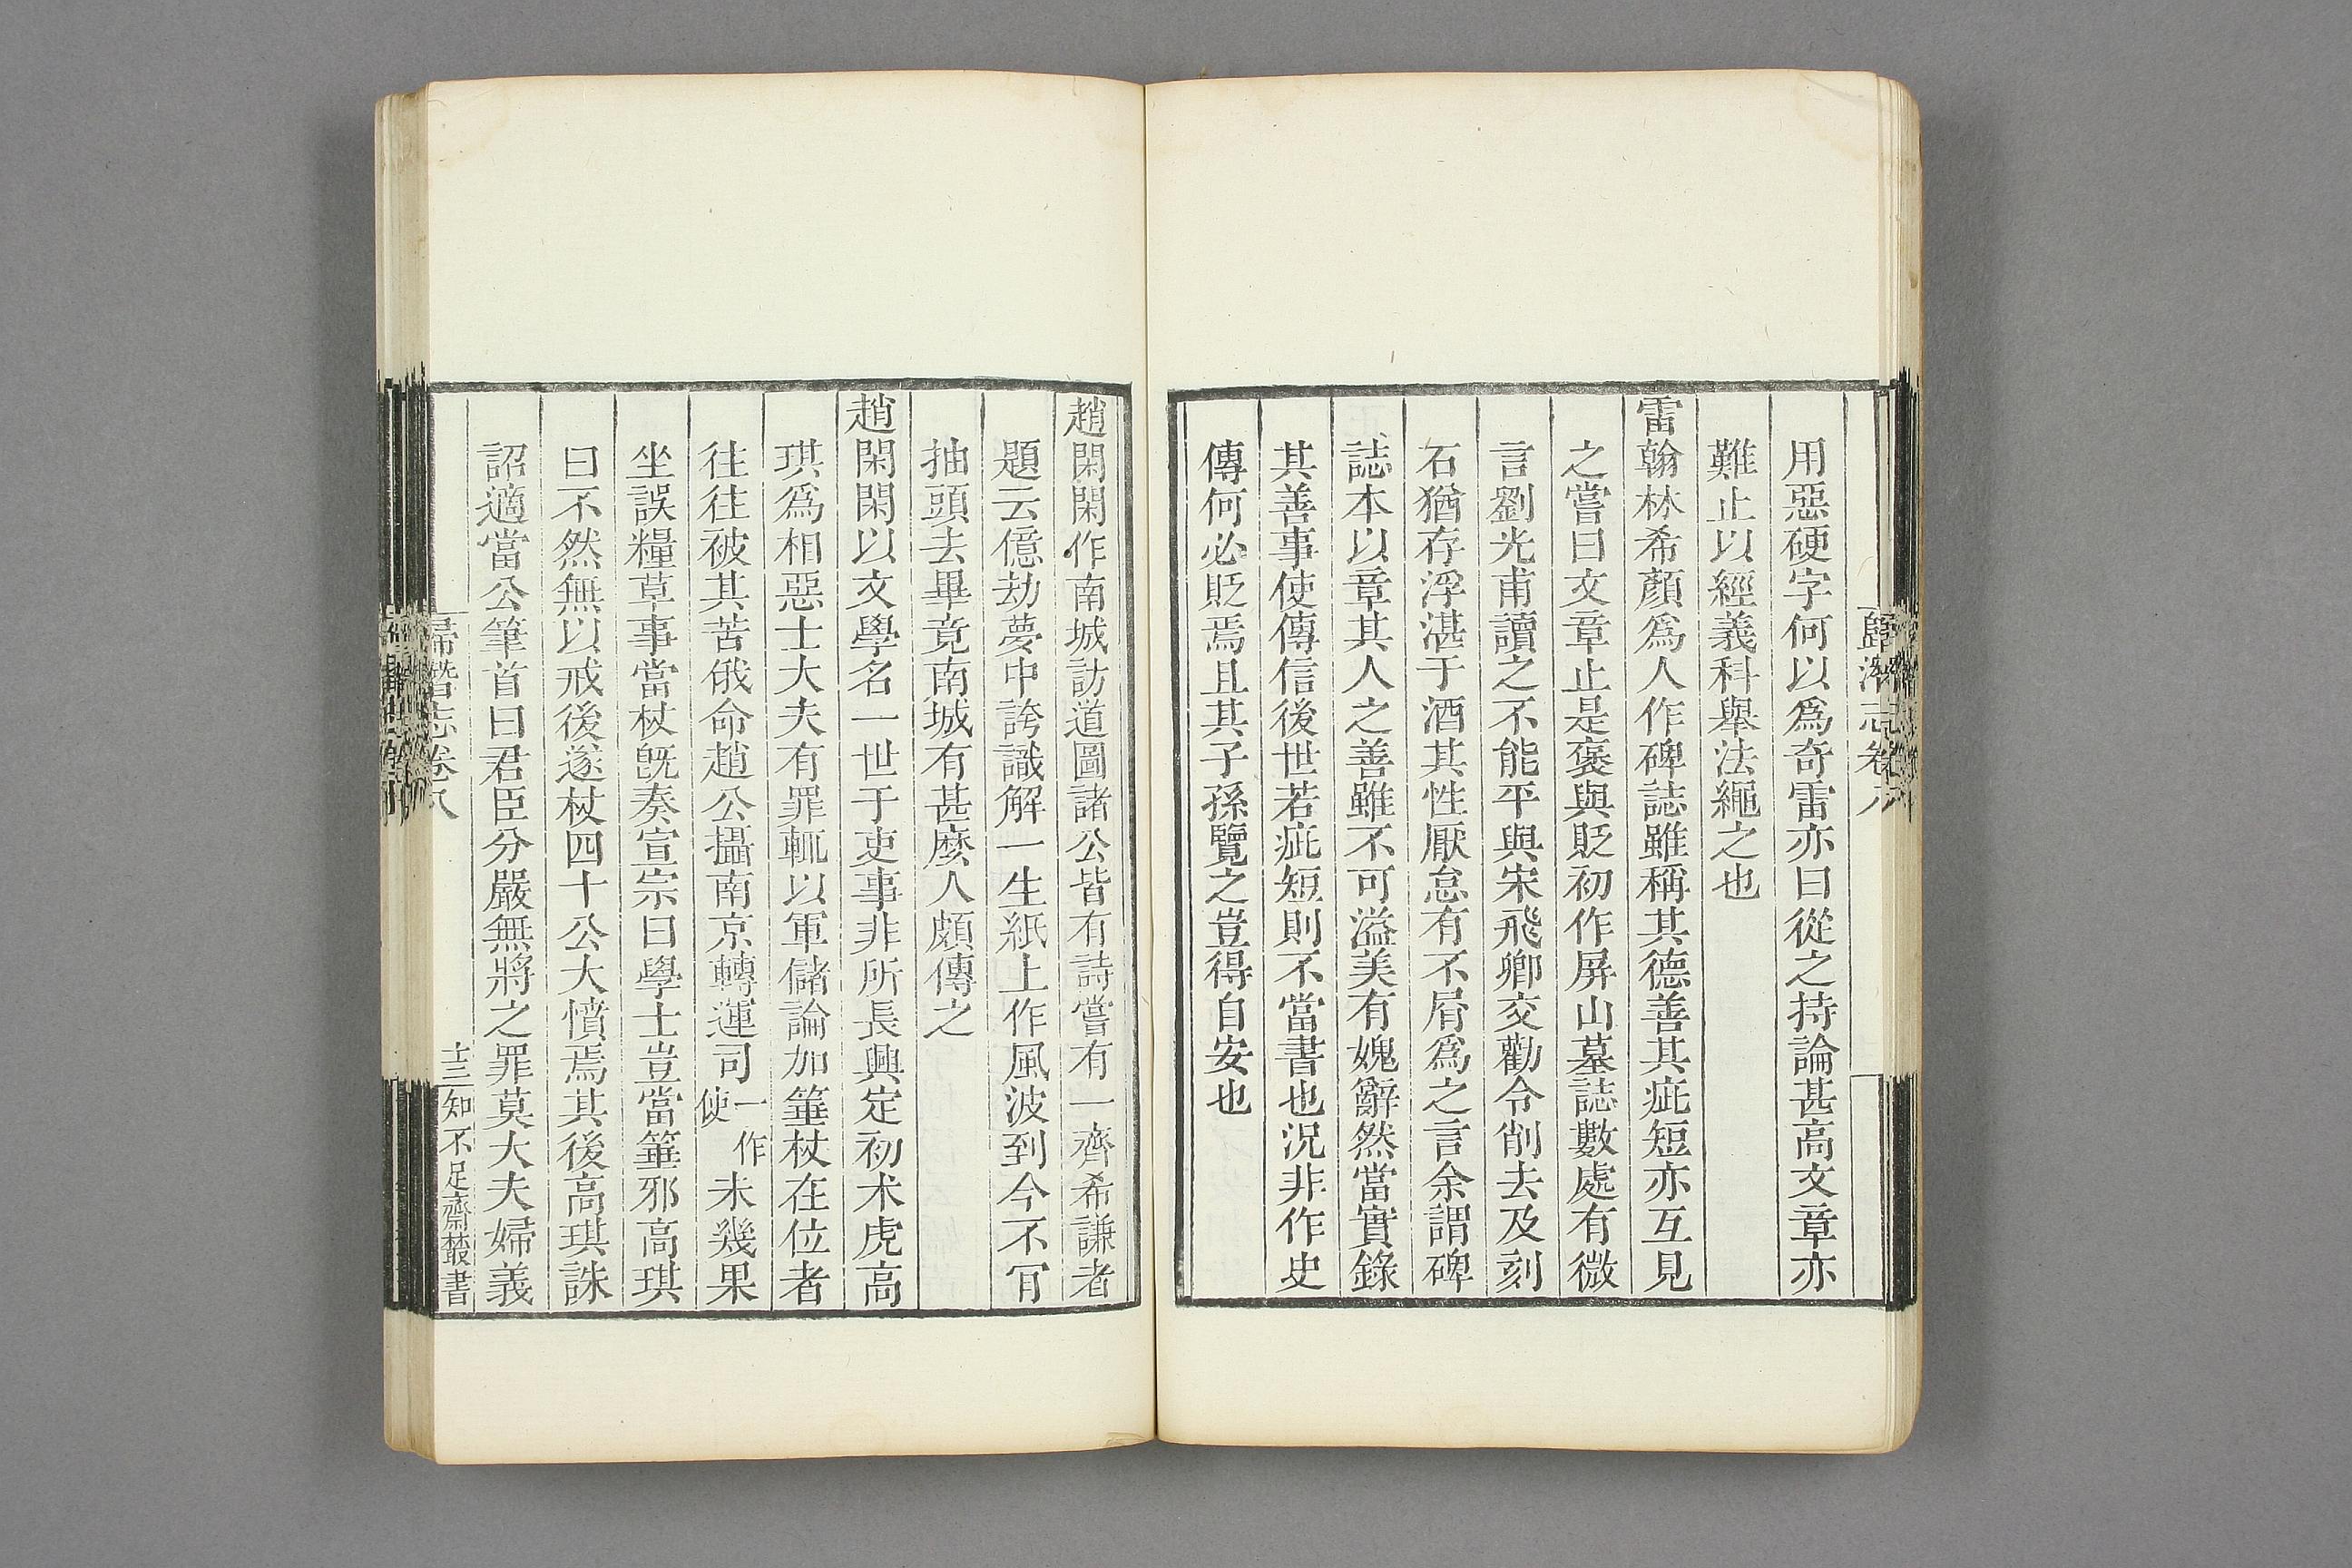 歸潛志卷八
用惡硬字何以爲奇雷亦曰從之持論甚高文章亦
難止以經義科舉法繩之也
雷翰林希顏爲人作碑誌雖稱其德善其疵短亦互見
之嘗曰文章止是褒與貶初作屏山墓誌數處有微
言劉光甫讀之不能平與宋飛卿交勸令削去及刻
石猶存浮湛于酒其性厭怠有不屑爲之言余謂碑
誌本以章其人之善雖不可溢美有媿辭然當實錄
其善事使傳信後世若疵短則不當書也況非作史
傳何必貶焉且其子孫覽之豈得自安也
趙閑閑作南城訪道圖諸公皆有詩嘗有一齊希謙者
題云億劫夢中誇識解一生紙上作風波到今不肎
抽頭去畢竟南城有甚麼人頗傳之
趙閑閑以文學名一世于吏事非所長興定初术虎高
琪爲相惡士大夫有罪輒以軍儲論加箠杖在位者
往往被其苦俄命趙公攝南京轉運司一作使未幾果
坐誤糧草事當杖旣奏宣宗曰學士豈當箠邪高琪
曰不然無以戒後遂杖四十公大憤焉其後高琪誅
詔適當公筆首曰君臣分嚴無將之罪莫大夫婦義
歸潛志卷八
十三
知不足齋叢書